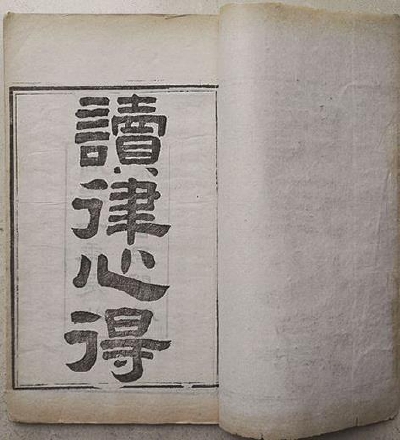 讀律心得